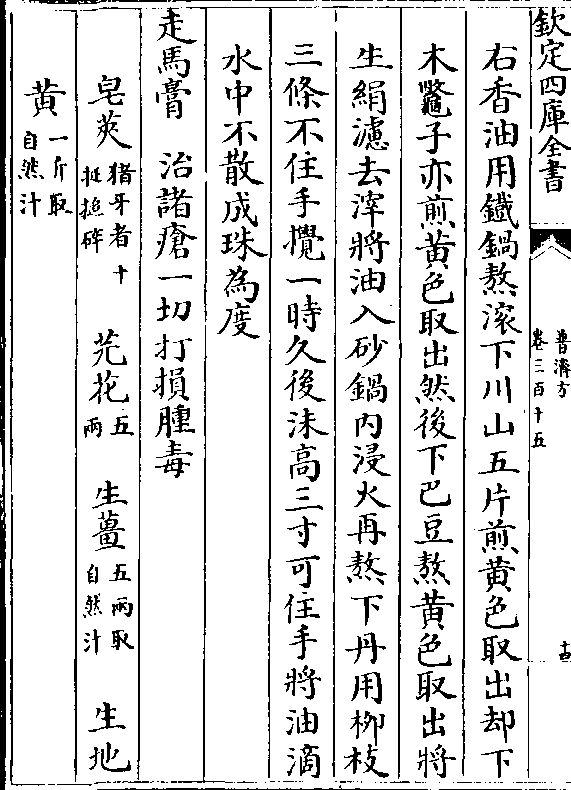 欽定四庫全書
普濟方
卷三百十五
右香油用鐵鍋熬滚下川山五片煎黄色取出却下
木鼈子亦煎黄色取出然後下巴豆熬黄色取出將
生絹濾去滓將油入砂鍋内浸火再熬下丹用柳枝
三條不住手攪一時久後沫高三寸可住手將油滴
水中不散成珠為度
走馬膏 治諸瘡一切打損腫毒
皂莢猪牙者十挺搥碎 芫花五兩 生薑五兩取自然汁 生地
黄一斤取自然汁